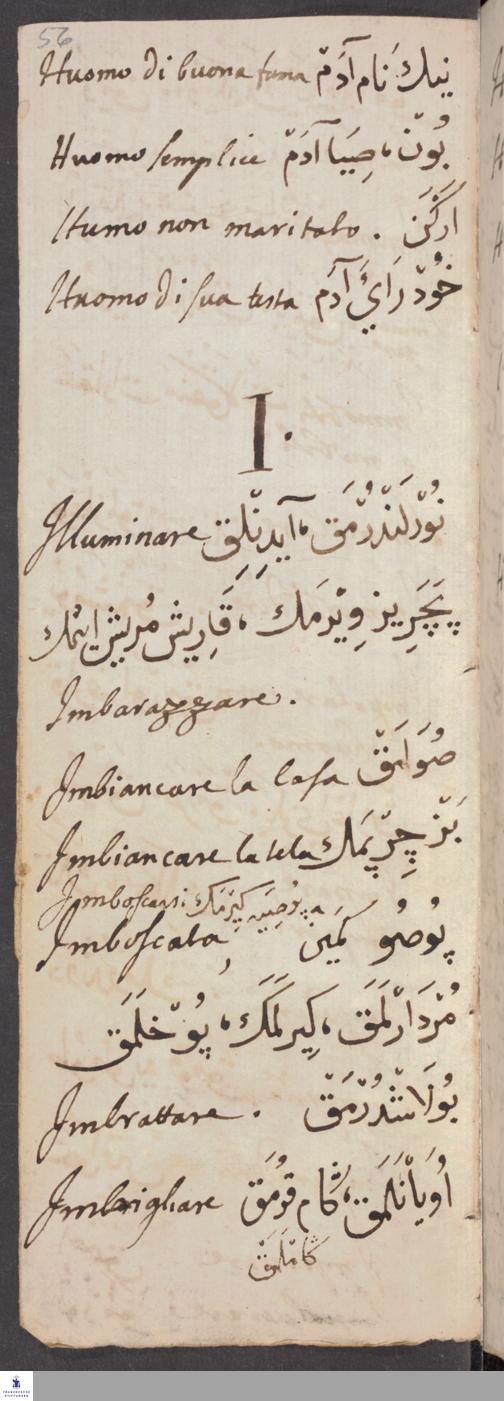 56
Huomo di buona fama نيك نام آدم
Huomo semplice بُون، صِيَا آدَم
Humo non maritato . اَرْكَن
Huomo di sua testa خُود رَاىْ آدَم
I.
Illuminare نُورْلَنْدُرْمَق، آيدِنْلِق
پَچَرِيز وِيرمَك، قَارِيش مُرِيش ايتمك
Imbarazzare .
Imbiancare la casa صُوَامَق
Imbiancare la tela بَزْ چِرْپمَك
Imboscarsi پوصيه كيرمك
Imboscata پُوصُو كَمِين
مُرْدَارْلَمَق، كِيرلَمَك، پُوخلَمَق
Imbrattare . بُولَاشْدُرْمَق
Imbrigliare اُويَانْلَمَق، كَام قُومَق
كاملمق
FRANCKESCHE STIFTUNGEN